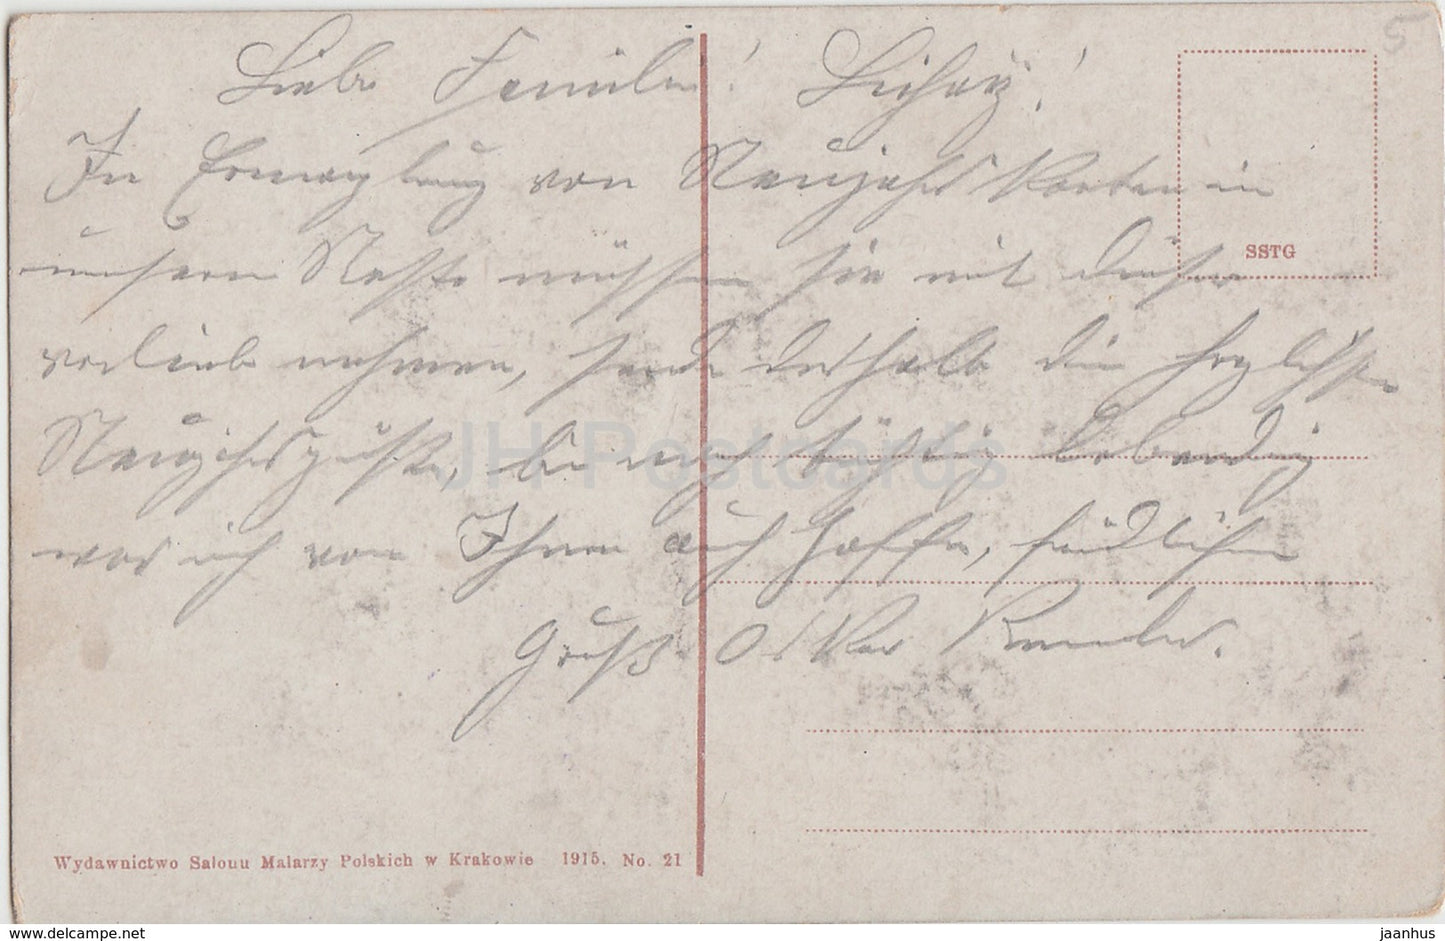 Liebe Familie! Licharz!
In Ermanglung von Neujahrs Karten in
unserm Neste müssen sie mit dieser
vorlieb nehmen, sende deshalb die herzlichsten
Neujahrsgrüße, bin noch lebendig
was ich von Ihnen auch hoffe, freundlichen
Gruß Oskar
SSTG
5
JH Postcards
Wydawnictwo Salonu Malarzy Polskich w Krakowie 1915. No. 21
delcampe.net
jaanhus